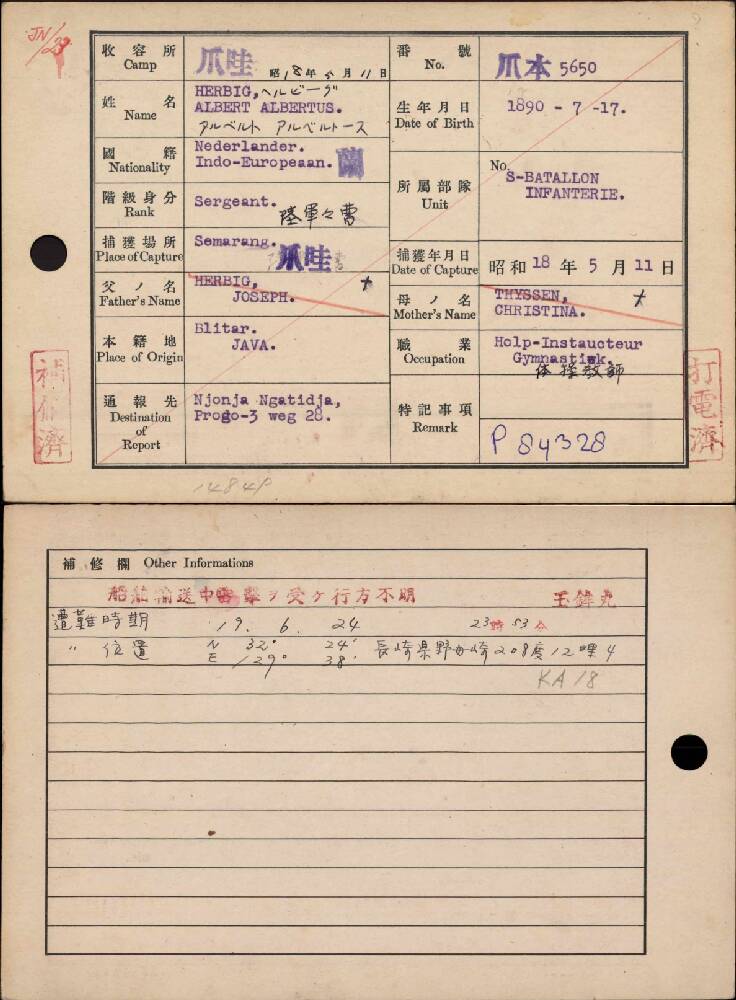 JN/28
收容所 Camp 爪哇 昭18年5月11日
番號 No. 爪本 5650
姓名 Name HERBIG, ヘルビーグ
ALBERT ALBERTUS.
アルベルト アルベルトース
生年月日 Date of Birth 1890 - 7 -17.
國籍 Nationality Nederlander.
Indo-Europeaan. 蘭
所屬部隊 Unit No. S-BATALLON
INFANTERIE.
階級身分 Rank Sergeant.
陸軍々曹
捕獲場所 Place of Capture Semarang. 爪哇
捕獲年月日 Date of Capture 昭和 18 年 5 月 11 日
父ノ名 Father's Name HERBIG,
JOSEPH.
母ノ名 Mother's Name THYSSEN,
CHRISTINA.
本籍地 Place of Origin Blitar.
JAVA.
職業 Occupation Hclp-Instaucteur
Gymnastiek.
体操教師
通報先 Destination of Report Njonja Ngatidja,
Progo-3 weg 28.
特記事項 Remark
P 84328
補修濟
打電濟
1484P
補修欄 Other Informations
船舶輸送中 撃ヲ受ケ行方不明 玉鉾丸
遭難時期 19. 6. 24 23時53分
〃 位置 N 32° 24'
E 129° 38' 長崎県野母崎208度12哩4
KA 18